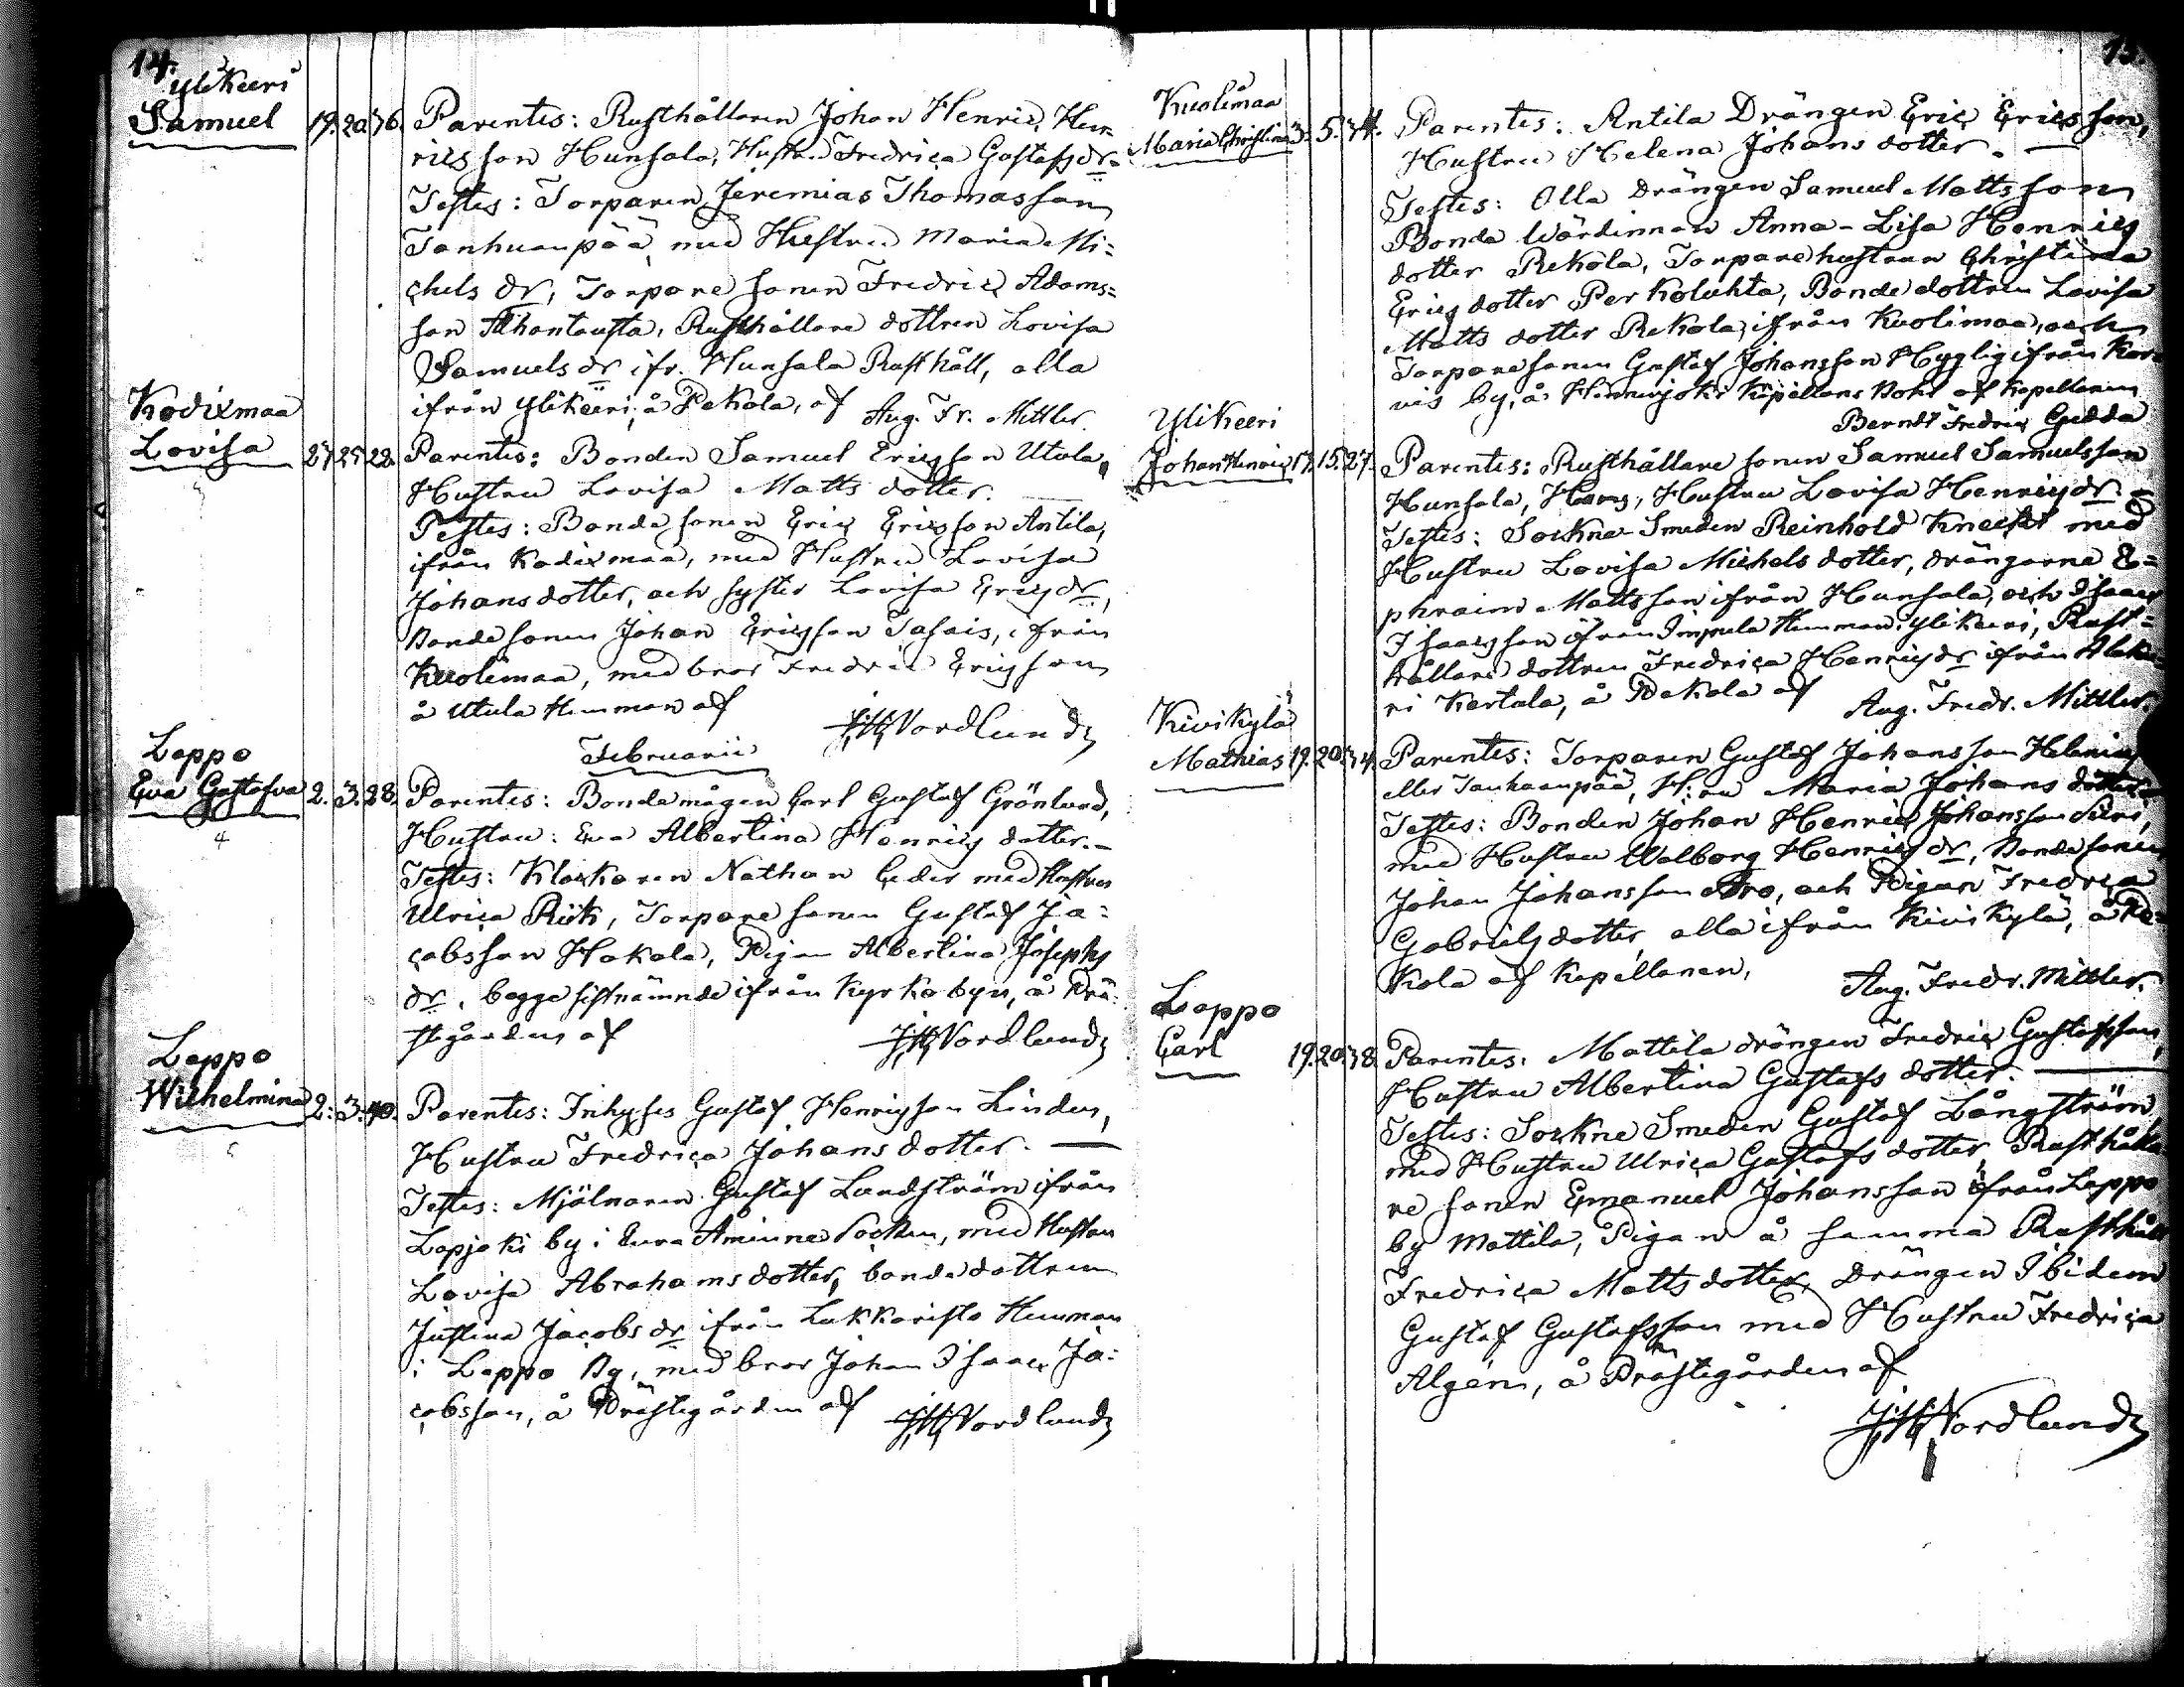 14.
Ylikeeri
Samuel 19. 20. 36. Parentes: Rusthållaren Johan Henric Hen-
ricsson Hunsala, Hustru Fredrica Gustafsdr.
Testes: Torparen Jeremias Thomasson
Tanhuanpää, med Hustru Maria Mi-
chels dr, Torpare sonen Fredric Adams-
son Ahontausta, Rusthållare dottren Lovisa
Samuels dr ifr. Hunsala Rusthåll, alla
ifrån Ylikeeri, å Pekola, af Aug. Fr. Mittler.
Kodixmaa
Lovisa 27. 29. 22. Parentes: Bonden Samuel Ericsson Utula,
Hustru Lovisa Matts dotter.
Testes: Bonde sonen Eric Ericsson Antila,
ifrån Kodixmaa, med Hustru Lovisa
Johans dotter, och syster Lovisa Erics dr,
Bonde sonen Johan Ericsson Tasais, ifrån
Kuolimaa, med bror Fredric Ericsson
å Utula Hemman af JH Nordlund
Februarii
Lappo
Eva Gustafva 2. 3. 28. Parentes: Bondemågen Carl Gustaf Grönlund,
Hustru: Eva Albertina Henrics dotter.
Testes: Klockaren Nathan Ceder med Hustru
Ulrica Riik, Torpare sonen Gustaf Ja-
cobsson Hakala, Pigan Albertina Josephs
dr, begge sistnämnde ifrån Kyrkobyn, å Prä-
stgården af JH Nordlund
4
Lappo
Wilhelmina 2. 3. 40. Parentes: Inhyses Gustaf Henricsson Linden,
Hustru Fredrica Johans dotter.
Testes: Mjölnaren Gustaf Lundström ifrån
Lapjoki by i Eura Åminne Socken, med Hustru
Lovisa Abrahams dotter, bonde dottren
Justina Jacobs dr ifrån Lukkaristo Hemman
i Lappo By, med bror Johan Isaac Ja-
cobsson, å Prästegården af JH Nordlund
15.
Kuolimaa
Maria Christina 3. 5. 34. Parentes: Antila Drängen Eric Ericsson,
Hustru Helena Johans dotter.
Testes: Olla Drängen Samuel Mattsson
Bonde Wärdinnan Anna-Lisa Henrics
dotter Rekola, Torparehustrun Christina
Erics dotter Perkoluhta, Bonde dottren Lovisa
Matts dotter Rekola, ifrån Kuolimaa, och
Torparesonen Gustaf Johansson Hyglig ifrån Kar-
vis by, å Hinnerjoki Kapellans Bohl af Kapellanen
Berndt Fredric Gedda
Ylikeeri
Johan Henric 13. 15. 27. Parentes: Rusthållare sonen Samuel Samuelsson
Hunsala, Hans, Hustru Lovisa Henrics dr.
Testes: Sockne Smeden Reinhold Knecht med
Hustru Lovisa Michels dotter, drängarne E-
phraim Mattsson ifrån Hunsala, och Isaac
Isaacsson ifrån Impula Hemman i Ylikeeri, Rust-
hållare dottren Fredrica Henrics dr ifrån Alakee-
ri Kartala, å Pekola af Aug. Fredr. Mittler.
Kivikylä
Mathias 19. 20. 34. Parentes: Torparen Gustaf Johansson Helenius
eller Tanhuanpää, H:ru Maria Johans dotter.
Testes: Bonden Johan Henric Johansson Siivi,
med Hustru Walborg Henrics dr, Bonde sonen
Johan Johansson Aro, och Pigan Fredrica
Gabriels dotter, alla ifrån Kivikylä, å Pe-
kola af Kapellanen, Aug. Fredr. Mittler.
Lappo
Carl 19. 20. 38. Parentes: Mattila drängen Fredric Gustafsson,
Hustru Albertina Gustafs dotter.
Testes: Sockne Smeden Gustaf Långström,
med Hustru Ulrica Gustafs dotter, Rusthålla-
re sonen Emanuel Johansson ifrån Lappo
by Mattila, Pigan å samma Rusthåll
Fredrica Matts dotter, Drängen Ibidem
Gustaf Gustafsson med Hustru Fredrica
Algén, å Prästegården af
JH Nordlund